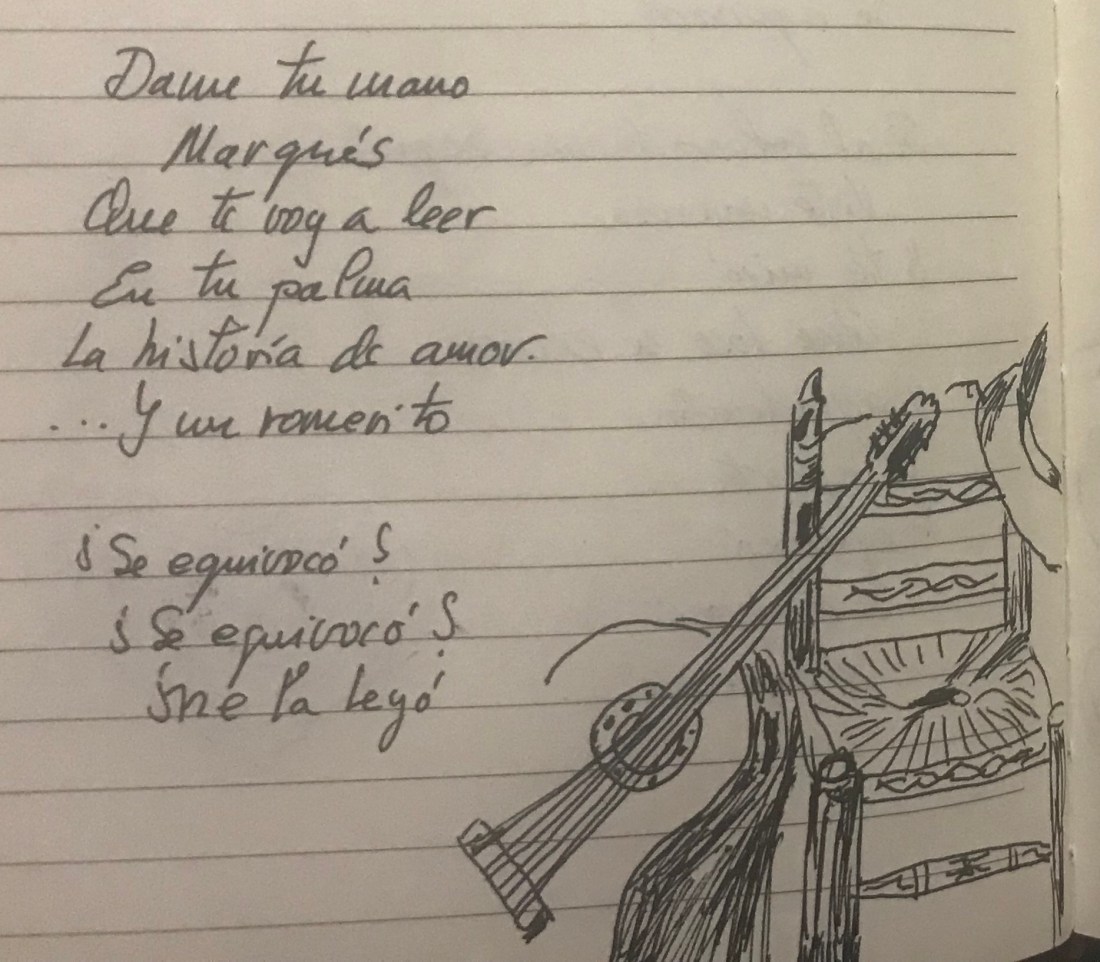 Dame tu mano
Marqués
Que te voy a leer
En tu palma
La historía de amor.
...Y un romerito
¡Se equivocó?
¡Se equivocó?
¡me la leyó